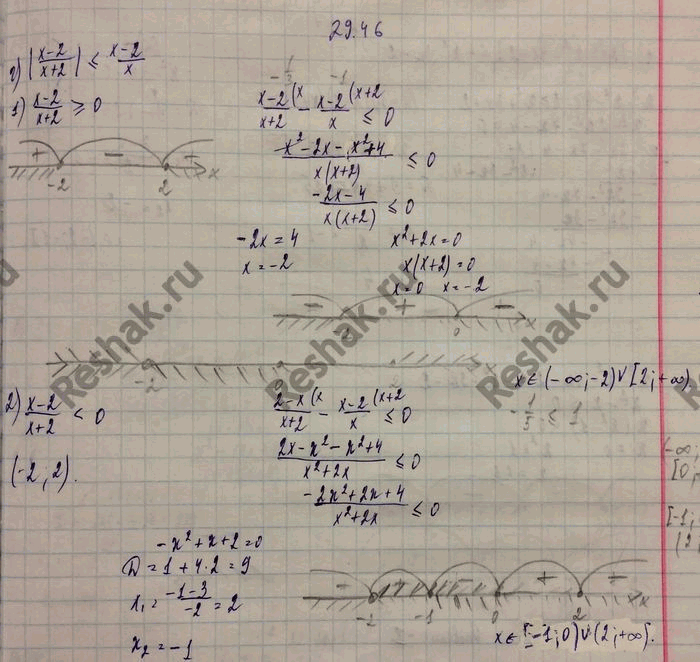 29.46
г) |(x-2)/(x+2)| ≤ (x-2)/x
1) (x-2)/(x+2) ≥ 0
+ - +
-2 2 x
-1/3 -1
(x-2(x)/(x+2) - (x-2(x+2)/x ≤ 0
(x²-2x-x²+4)/(x(x+2)) ≤ 0
(-2x-4)/(x(x+2)) ≤ 0
-2x=4 x²+2x=0
x=-2 x(x+2)=0
x=0 x=-2
- + -
-2 0 x
-2 0 2 x
x∈(-∞;-2)∨[2;+∞)
2) (x-2)/(x+2) < 0
(-2;2).
(2-x(x)/(x+2) - (x-2(x+2)/x ≤ 0
-1/5 ≤ 1
(2x-x²-x²+4)/(x²+2x) ≤ 0
(-2x²+2x+4)/(x²+2x) ≤ 0
-x²+x+2=0
D=1+4·2=9
x₁=(-1-3)/(-2)=2
x₂=-1
-1 0 2 x
x∈[-1;0)∨(2;+∞).
Reshak.ru
Reshak.ru
Reshak.ru